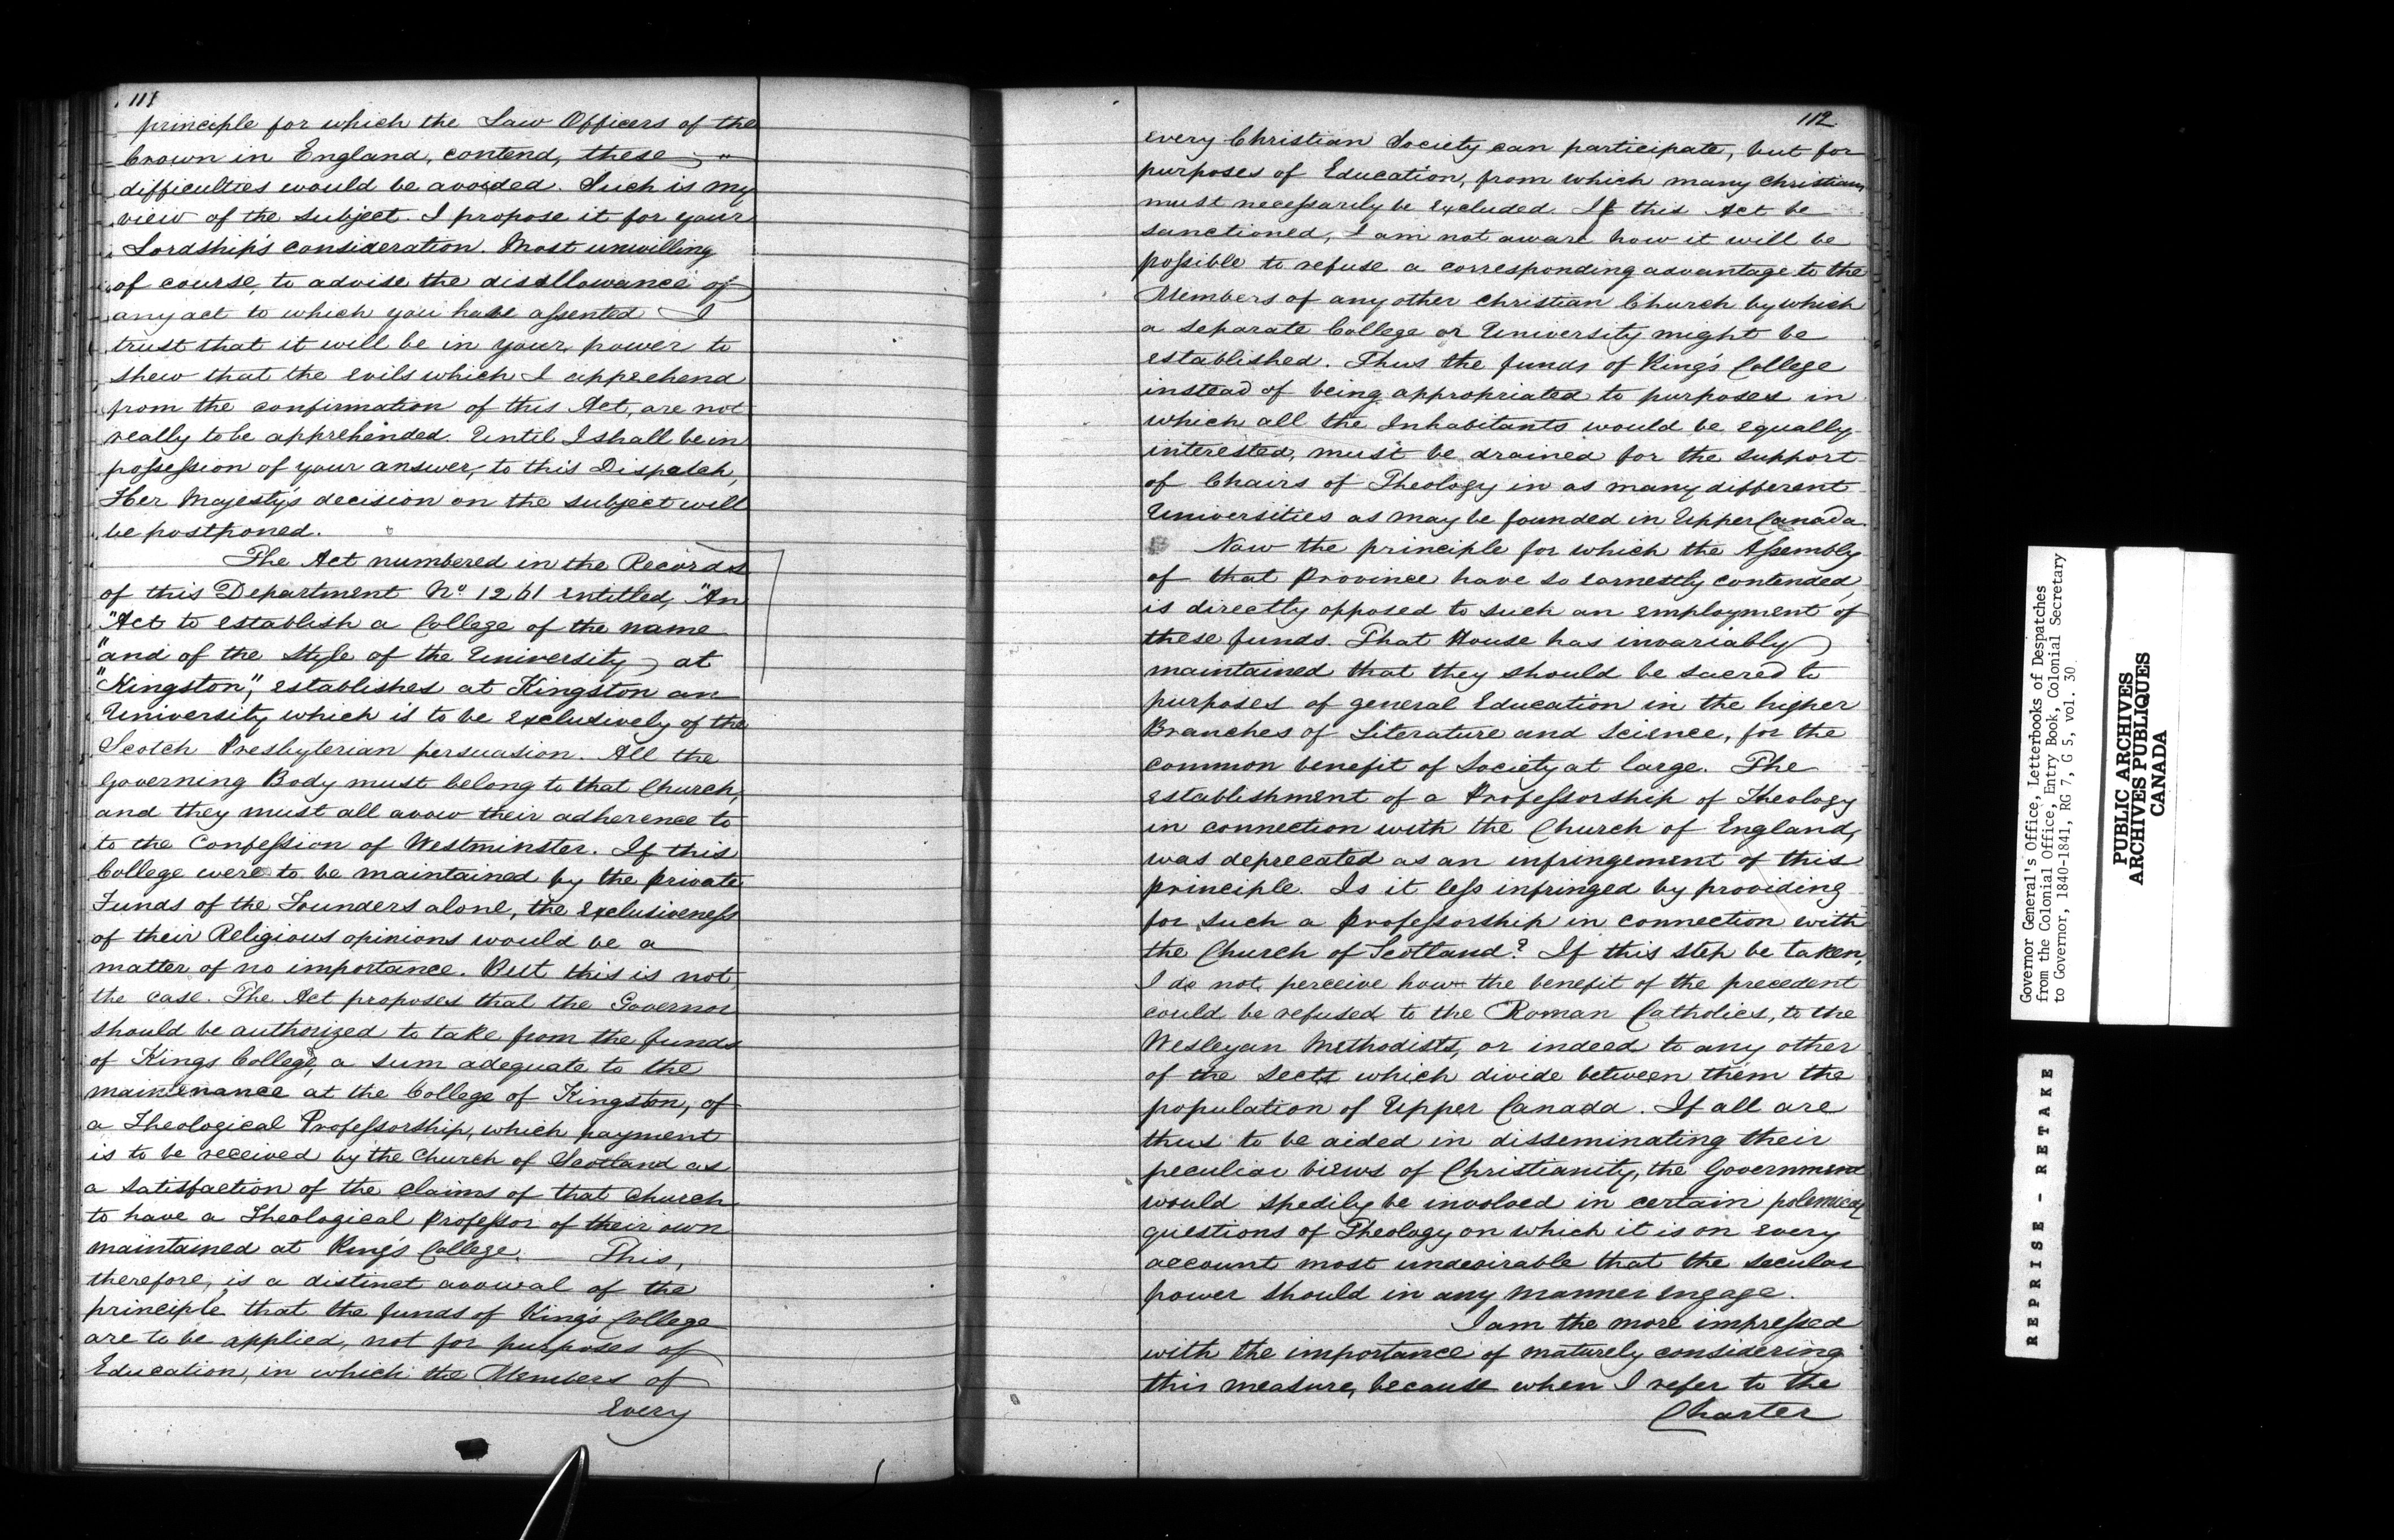 111
principle for which the Law Officers of the
Crown in England, contend, these
difficulties would be avoided. Such is my
view of the subject. I propose it for your
Lordship's consideration. Most unwilling
of course, to advise the disallowance of
any act to which you have assented I
trust that it will be in your power to
shew that the evils which I apprehend
from the confirmation of this Act, are not
really to be apprehended. Until I shall be in
possession of your answer, to this Dispatch,
Her Majesty's decision on the subject will
be postponed.
The Act numbered in the Records
of this Department No 1261 entitled, "An
"Act to establish a College of the name
"and of the Style of the University at
"Kingston", establishes at Kingston an
University which is to be exclusively of the
Scotch Presbyterian persuasion. All the
Governing Body must belong to that Church,
and they must all avow their adherence to
to the Confession of Westminster. If this
College were to be maintained by the private
Funds of the Founders alone, the exclusiveness
of their Religious opinions would be a
matter of no importance. But this is not
the case. The Act proposes that the Governor
should be authorized to take from the funds
of Kings College, a sum adequate to the
maintenance at the College of Kingston, of
a Theological Professorship, which payment
is to be received by the Church of Scotland as
a satisfaction of the claims of that Church
to have a Theological Professor of their own
maintained at King's College. This,
therefore, is a distinct avowal of the
principle that the funds of King's College
are to be applied, not for purposes of
Education, in which the Members of
Every
112
every Christian Society can participate, but for
purposes of Education, from which many Christians
must necessarily be excluded. If this Act be
sanctioned, I am not aware how it will be
possible to refuse a corresponding advantage to the
Members of any other Christian Church by which
a separate College or University might be
established. Thus the funds of King's College
instead of being appropriated to purposes in
which all the Inhabitants would be equally
interested, must be drained for the support
of Chairs of Theology in as many different
Universities as may be founded in Upper Canada.
Now the principle for which the Assembly
of that Province have so earnestly contended,
is directly opposed to such an employment of
these funds. That House has invariably
maintained that they should be sacred to
purposes of general Education in the higher
Branches of Literature and Science, for the
common benefit of Society at large. The
establishment of a Professorship of Theology
in connection with the Church of England,
was deprecated as an infringement of this
principle. Is it less infringed by providing
for such a Professorship in connection with
the Church of Scotland? If this step be taken,
I do not perceive how the benefit of the precedent
could be refused to the Roman Catholics, to the
Wesleyan Methodists, or indeed to any other
of the Sects which divide between them the
population of Upper Canada. If all are
thus to be aided in disseminating their
peculiar views of Christianity, the Government
would spedily be involved in certain polemical
questions of Theology on which it is on every
account most undesirable that the secular
power should in any manner engage.
I am the more impressed
with the importance of maturely considering
this measure, because when I refer to the
Charter
Governor General's Office, Letterbooks of Despatches
from the Colonial Office, Entry Book, Colonial Secretary
to Governor, 1840-1841, RG 7, G 5, vol. 30.
PUBLIC ARCHIVES
ARCHIVES PUBLIQUES
CANADA
REPRISE - RETAKE